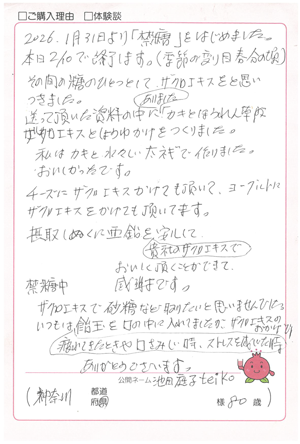 □ご購入理由 □体験談
2026.1月31日より「禁糖」をはじめました。
本日2/10で終了です。(季節の変り目春分の頃)
その間の糖のひとつとして、ザクロエキスをと思い
つきました。 ありました
送って頂いた資料の中に「カキとほうれん草
ザクロエキスとぽんずかけをつくりました。
私はカキと で作りました。
おいしかったです。
チーズにザクロエキスかけても頂いて、ヨーグルトに
ザクロエキスをかけても頂いてます。
摂取しぬくに亜鉛を
貴社のザクロエキスで
おいしく頂くことができて、
禁糖中 感謝です。
ザクロエキスで砂糖など取りたいと思いませんでした
いつもは飴玉を口の中に入れましたが ザクロエキスの
おかげです
疲れてきたときや口さみしい時、ストレスを感じた時
ありがとうございます。
公開ネーム teiko
(神奈川 都道府県 様 80歳)